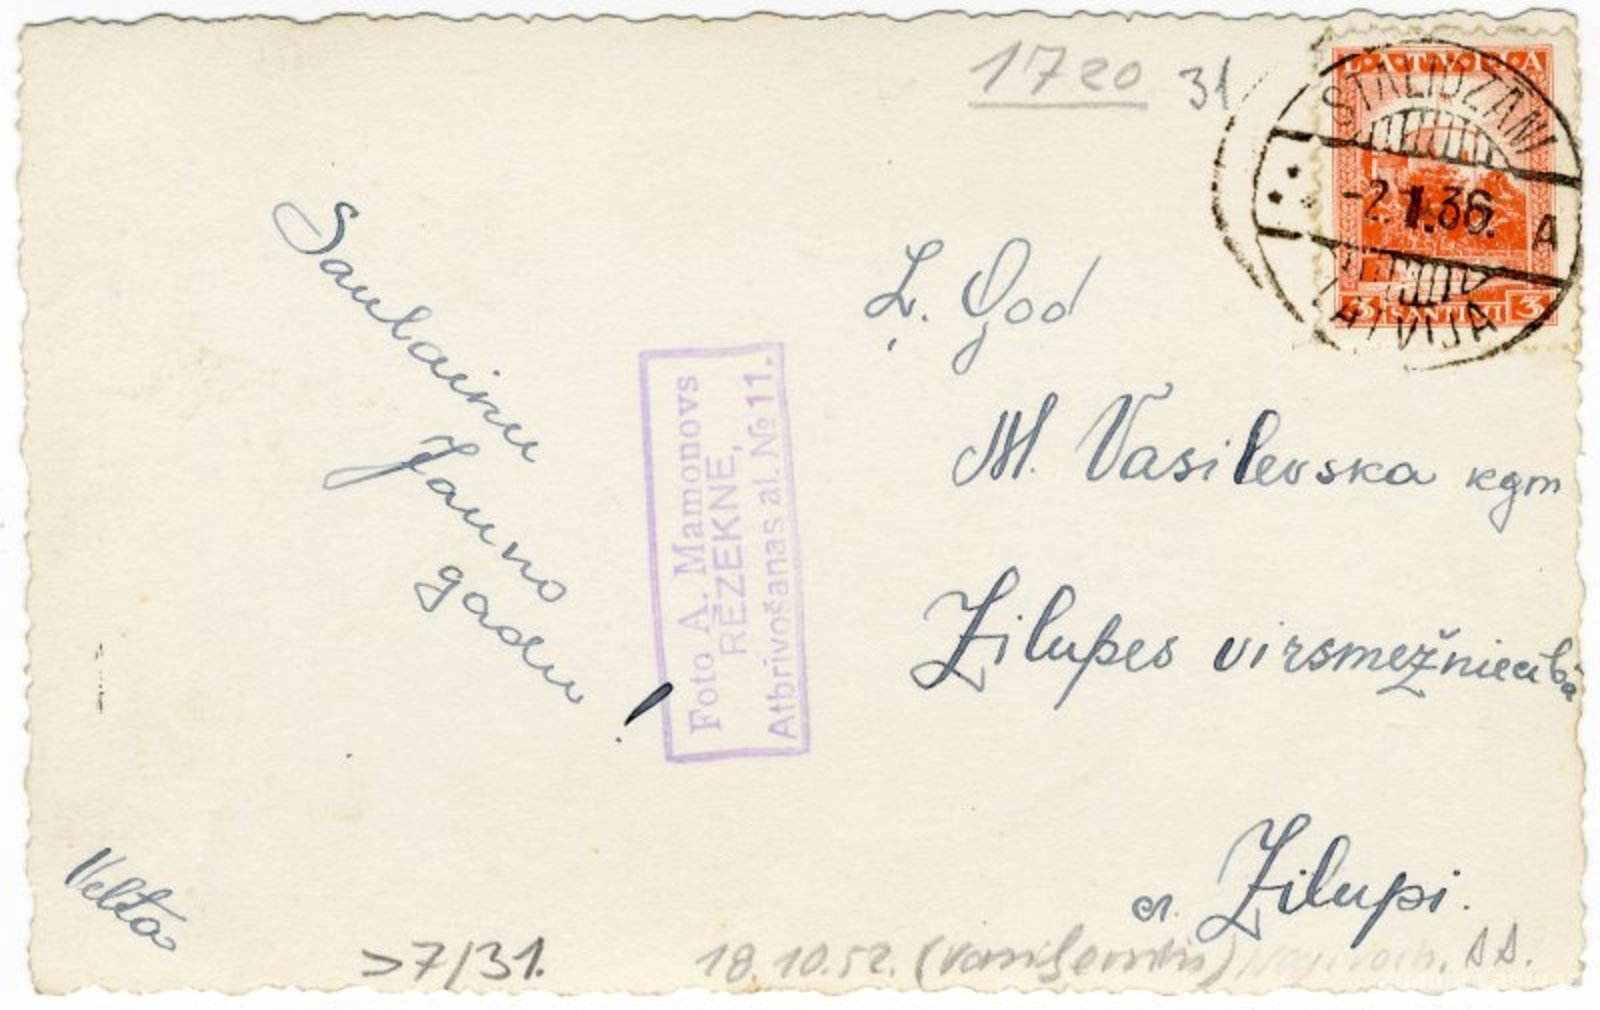 1720 31
LATVIJA
STALIDZĀNI
-2.1.36. A
LATVIJA
3 SANTIMI 3
Saulainu
Jauno
gadu
!
Velta
Foto A. Mamonovs
RĒZEKNE,
Atbrīvošanas al. № 11.
Ļ. God
M. Vasiļevska kgm
Zilupes virsmežniecībā
Zilupi.
>7/31.
18.10.52.